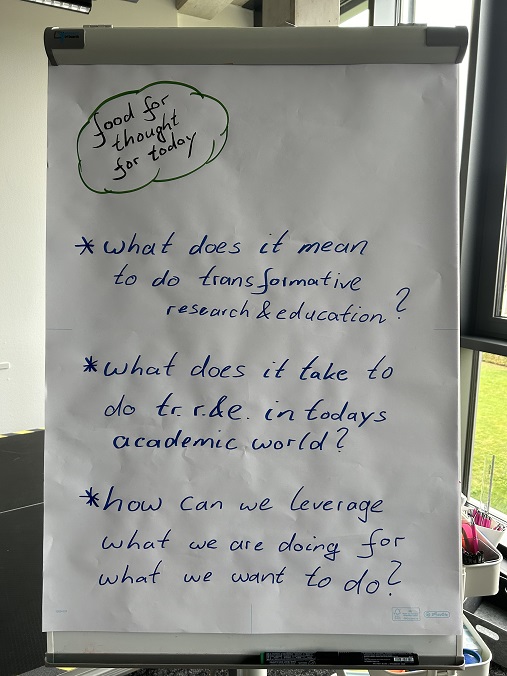 food for
thought
for today
* what does it mean
to do transformative
research & education?
* what does it take to
do tr. r.&e. in todays
academic world?
* how can we leverage
what we are doing for
what we want to do?